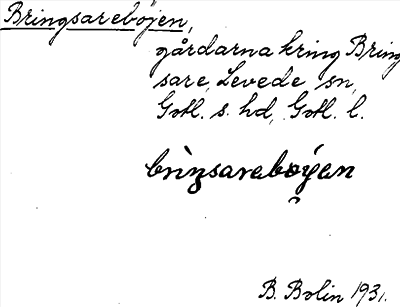 Bringsarebøjen,
gårdarna kring Bring
sare, Levede sn,
Gotl. s. hd, Gotl. l.
briŋsarebøi̯en
B. Bolin 1931.